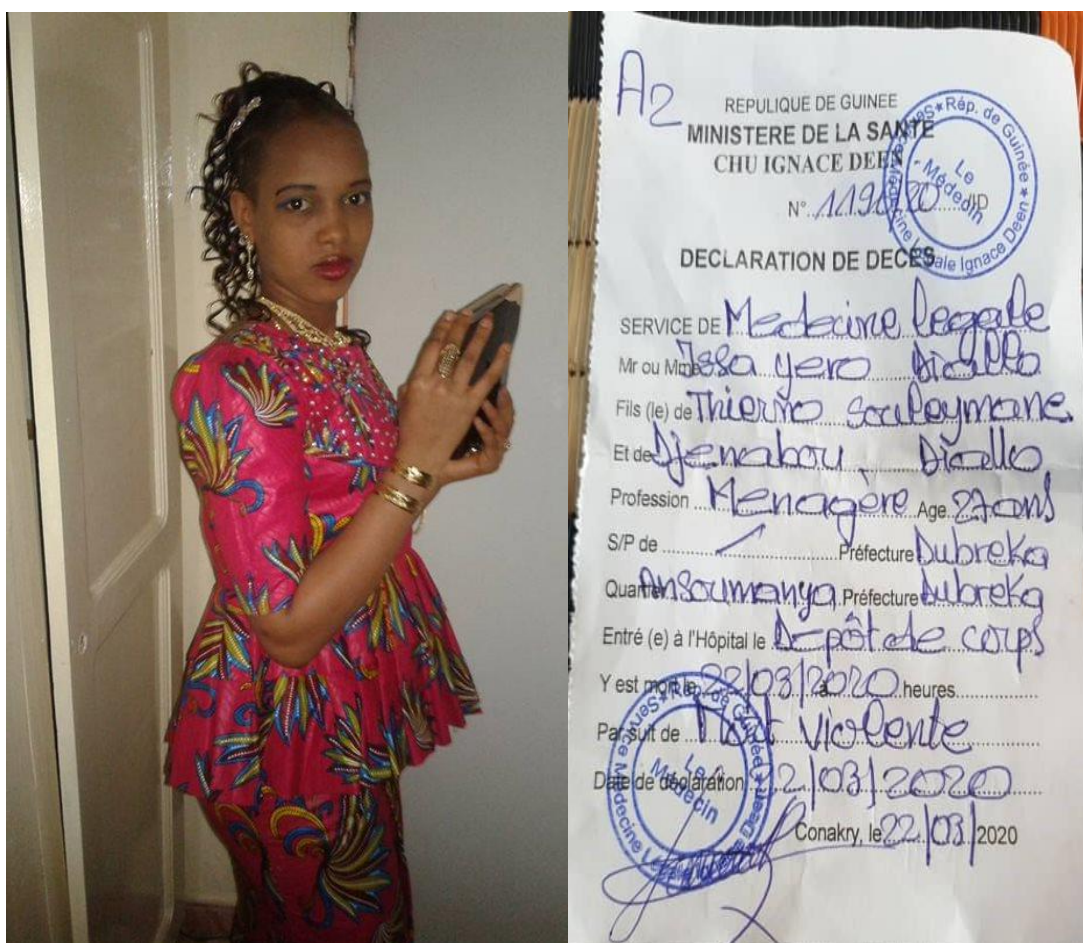 A2
REPULIQUE DE GUINEE
MINISTERE DE LA SANTE
CHU IGNACE DEEN
N° JD
DECLARATION DE DECES
SERVICE DE Medecine legale
Mr ou Mme Issa yero Diallo
Fils (le) de Thierno Souleymane
Et de Djenabou Diallo
Profession Menagère Age 27 ans
S/P de Préfecture Dubreka
Quartier Ansoumanya Préfecture Dubreka
Entré (e) à l'Hôpital le Depôt de corps
Y est mort le 22/03/2020 à heures
Par suit de Mort violente
Date de déclaration 22/03/2020
Conakry, le 22/03/2020
Service Médecine Légale Ignace Deen * Rép. de Guinée *
Le Médecin